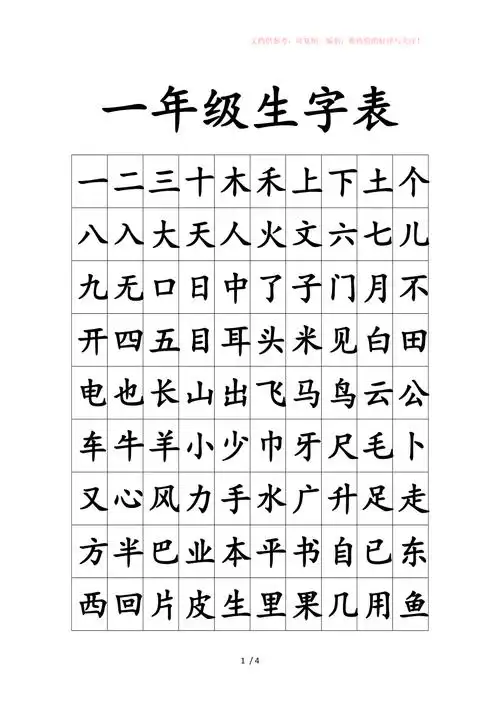 文档供参考，可复制、编制，期待您的好评与关注！
一年级生字表
一二三十木禾上下土个
八入大天人火文六七儿
九无口日中了子门月不
开四五目耳头米见白田
电也长山出飞马鸟云公
车牛羊小少巾牙尺毛卜
又心风力手水广升足走
方半巴业本平书自已东
西回片皮生里果几用鱼
1 /4